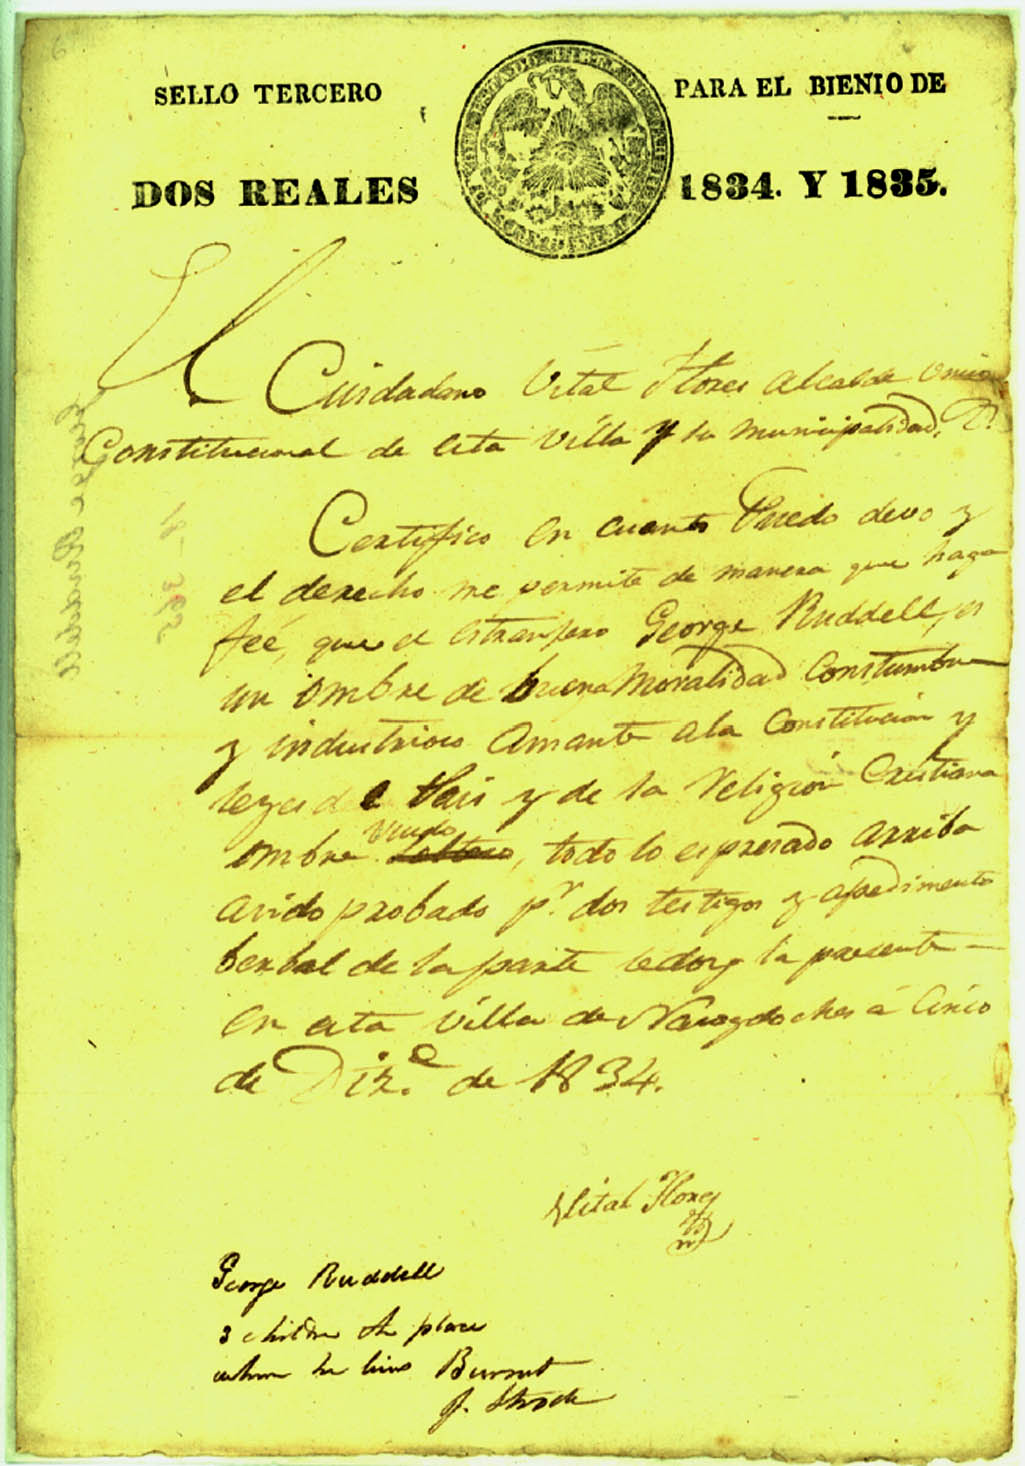 SELLO TERCERO PARA EL BIENIO DE
DOS REALES 1834. Y 1835.
El Cuidadano Vital Flores Alcalde Unico
Constitucional de esta Villa y su Municipalidad.
Certifico en cuanto Puedo devo y
el derecho me permite de manera que haga
feé, que el estranjero George Ruddell, es
un ombre de buena Moralidad Constumbre
y industrioso Amante a la Constitucion y
leyes del Pais y de la Religion Cristiana
ombre Viudo, todo lo espresado arriba
asido probado pr. dos testigos y apedimento
berbal de la parte ledoy la presente
en esta Villa de Nacogdoches á Cinco
de Dize. de 1834.
Vital Flores
George Ruddell
3 children the place
where he lives Burnet
J. Strode
George Ruddell